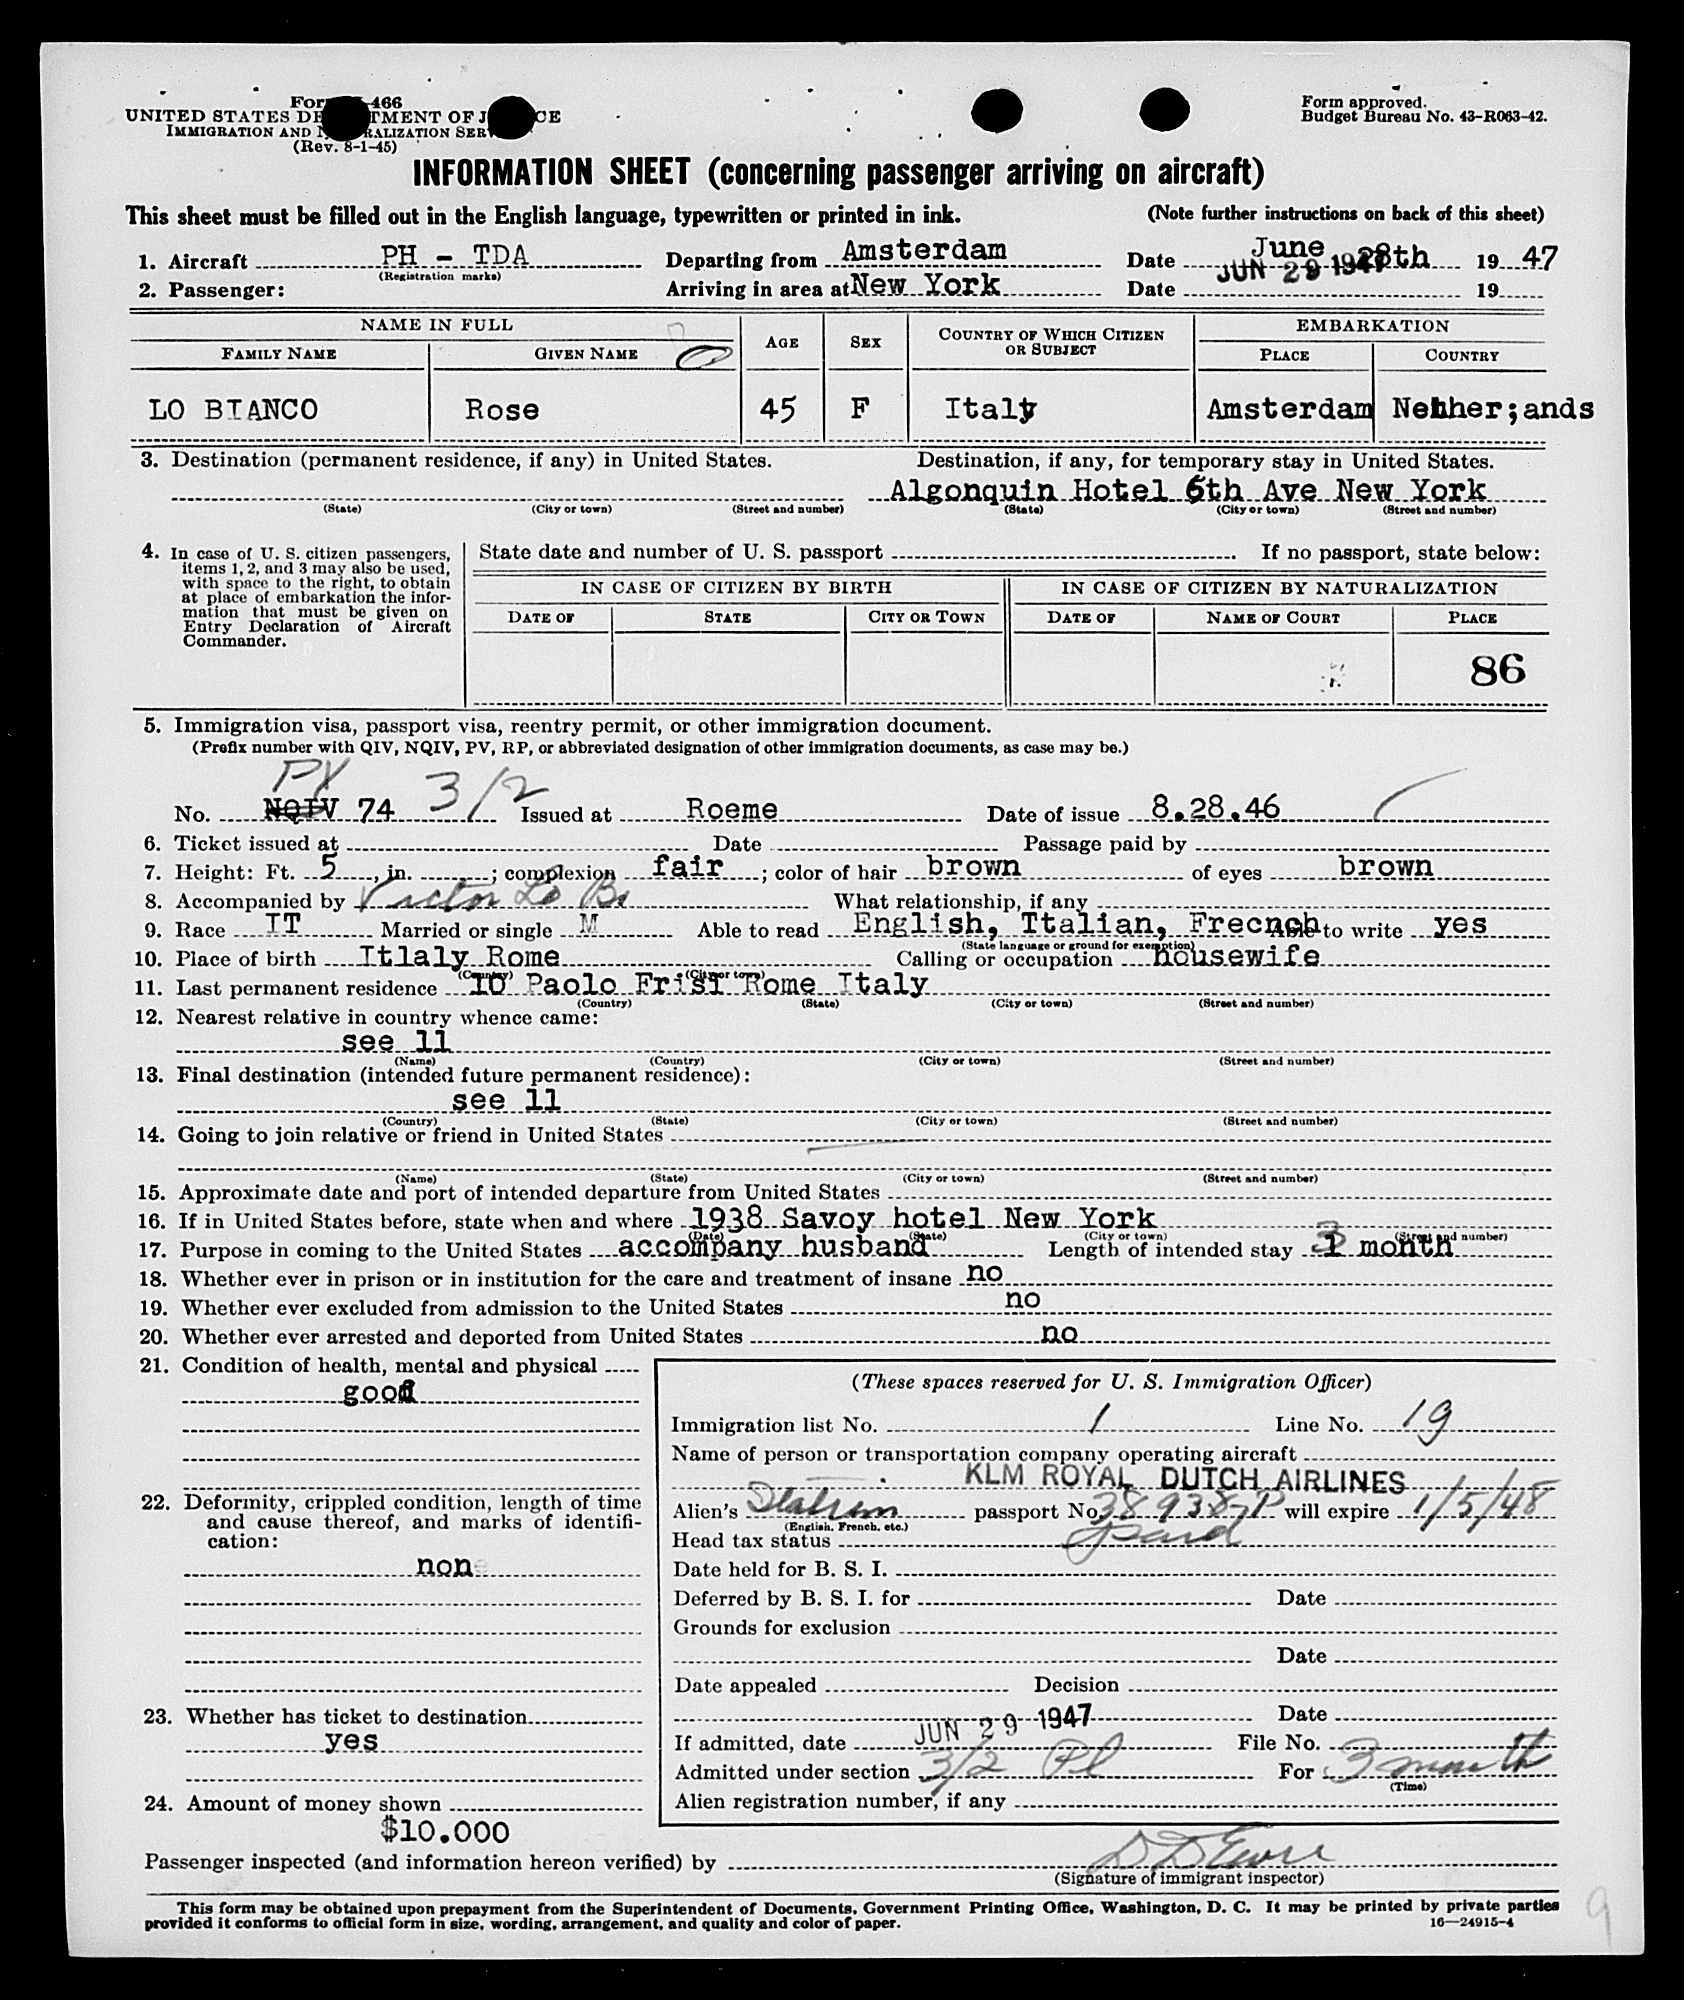 For 466
UNITED STATES DE TMENT OF J CE
IMMIGRATION AND N RALIZATION SER
(Rev. 8-1-45)
Form approved.
Budget Bureau No. 43-R063-42.
INFORMATION SHEET (concerning passenger arriving on aircraft)
This sheet must be filled out in the English language, typewritten or printed in ink. (Note further instructions on back of this sheet)
1. Aircraft PH - TDA Departing from Amsterdam Date June 28th 19 47
(Registration marks)
2. Passenger: Arriving in area at New York Date JUN 29 1947 19
NAME IN FULL AGE SEX COUNTRY OF WHICH CITIZEN OR SUBJECT EMBARKATION
FAMILY NAME GIVEN NAME PLACE COUNTRY
LO BIANCO Rose 45 F Italy Amsterdam Nether;ands
3. Destination (permanent residence, if any) in United States. Destination, if any, for temporary stay in United States.
Algonquin Hotel 6th Ave New York
(State) (City or town) (Street and number) (State) (City or town) (Street and number)
4. In case of U. S. citizen passengers, items 1, 2, and 3 may also be used, with space to the right, to obtain at place of embarkation the information that must be given on Entry Declaration of Aircraft Commander.
State date and number of U. S. passport . If no passport, state below:
IN CASE OF CITIZEN BY BIRTH IN CASE OF CITIZEN BY NATURALIZATION
DATE OF STATE CITY OR TOWN DATE OF NAME OF COURT PLACE
86
5. Immigration visa, passport visa, reentry permit, or other immigration document.
(Prefix number with QIV, NQIV, PV, RP, or abbreviated designation of other immigration documents, as case may be.)
PV 3/2
No. NQIV 74 Issued at Roeme Date of issue 8.28.46
6. Ticket issued at Date Passage paid by
7. Height: Ft. 5, in. ; complexion fair; color of hair brown of eyes brown
8. Accompanied by Victor Lo Bi What relationship, if any
9. Race IT Married or single M Able to read English, Ttalian, Frecnch Able to write yes
(State language or ground for exemption)
10. Place of birth Itlaly Rome Calling or occupation housewife
(Country) (City or town)
11. Last permanent residence 10 Paolo Frisi Rome Italy
(Country) (State) (City or town) (Street and number)
12. Nearest relative in country whence came:
see 11
(Name) (Country) (City or town) (Street and number)
13. Final destination (intended future permanent residence):
see 11
(Country) (State) (City or town) (Street and number)
14. Going to join relative or friend in United States
(Name) (State) (City or town) (Street and number)
15. Approximate date and port of intended departure from United States
16. If in United States before, state when and where 1938 Savoy hotel New York
(Date) (State) (City or town) (Street and number)
17. Purpose in coming to the United States accompany husband Length of intended stay 3 month
18. Whether ever in prison or in institution for the care and treatment of insane no
19. Whether ever excluded from admission to the United States no
20. Whether ever arrested and deported from United States no
21. Condition of health, mental and physical
good
22. Deformity, crippled condition, length of time and cause thereof, and marks of identification:
none
23. Whether has ticket to destination
yes
24. Amount of money shown
$10.000
(These spaces reserved for U. S. Immigration Officer)
Immigration list No. 1 Line No. 19
Name of person or transportation company operating aircraft
KLM ROYAL DUTCH AIRLINES
Alien's passport No. 38938-P will expire 1/5/48
(English, French, etc.)
Head tax status
Date held for B. S. I.
Deferred by B. S. I. for Date
Grounds for exclusion
Date
Date appealed Decision
Date
If admitted, date JUN 29 1947 File No.
Admitted under section 3/2 For 3 month
(Time)
Alien registration number, if any
Passenger inspected (and information hereon verified) by
(Signature of immigrant inspector)
This form may be obtained upon prepayment from the Superintendent of Documents, Government Printing Office, Washington, D. C. It may be printed by private parties
provided it conforms to official form in size, wording, arrangement, and quality and color of paper. 16—24915-4
9